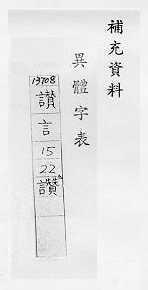 補充資料
異體字表
13708
讃
言
15
22
讚